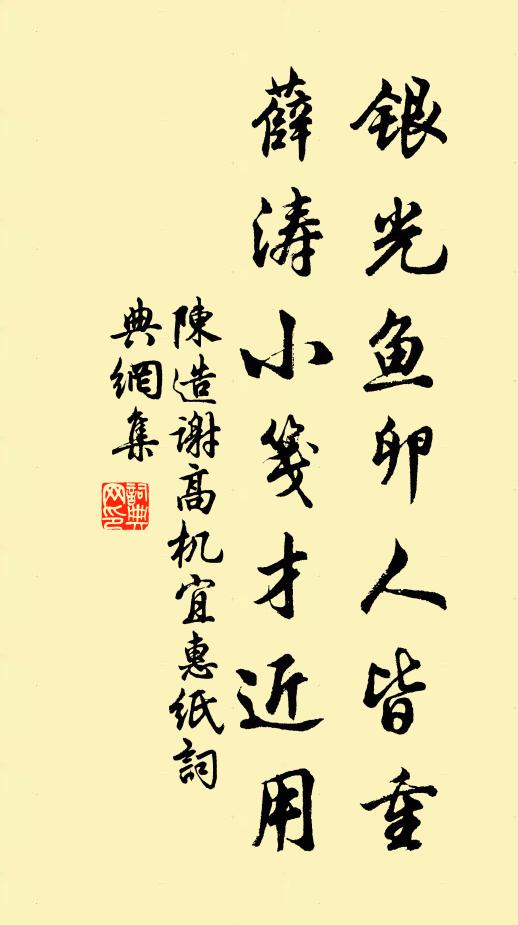 银光鱼卵人皆重
薛涛小笺才近用
陳造谢高机宜惠纸詞
典網集
詞典网印